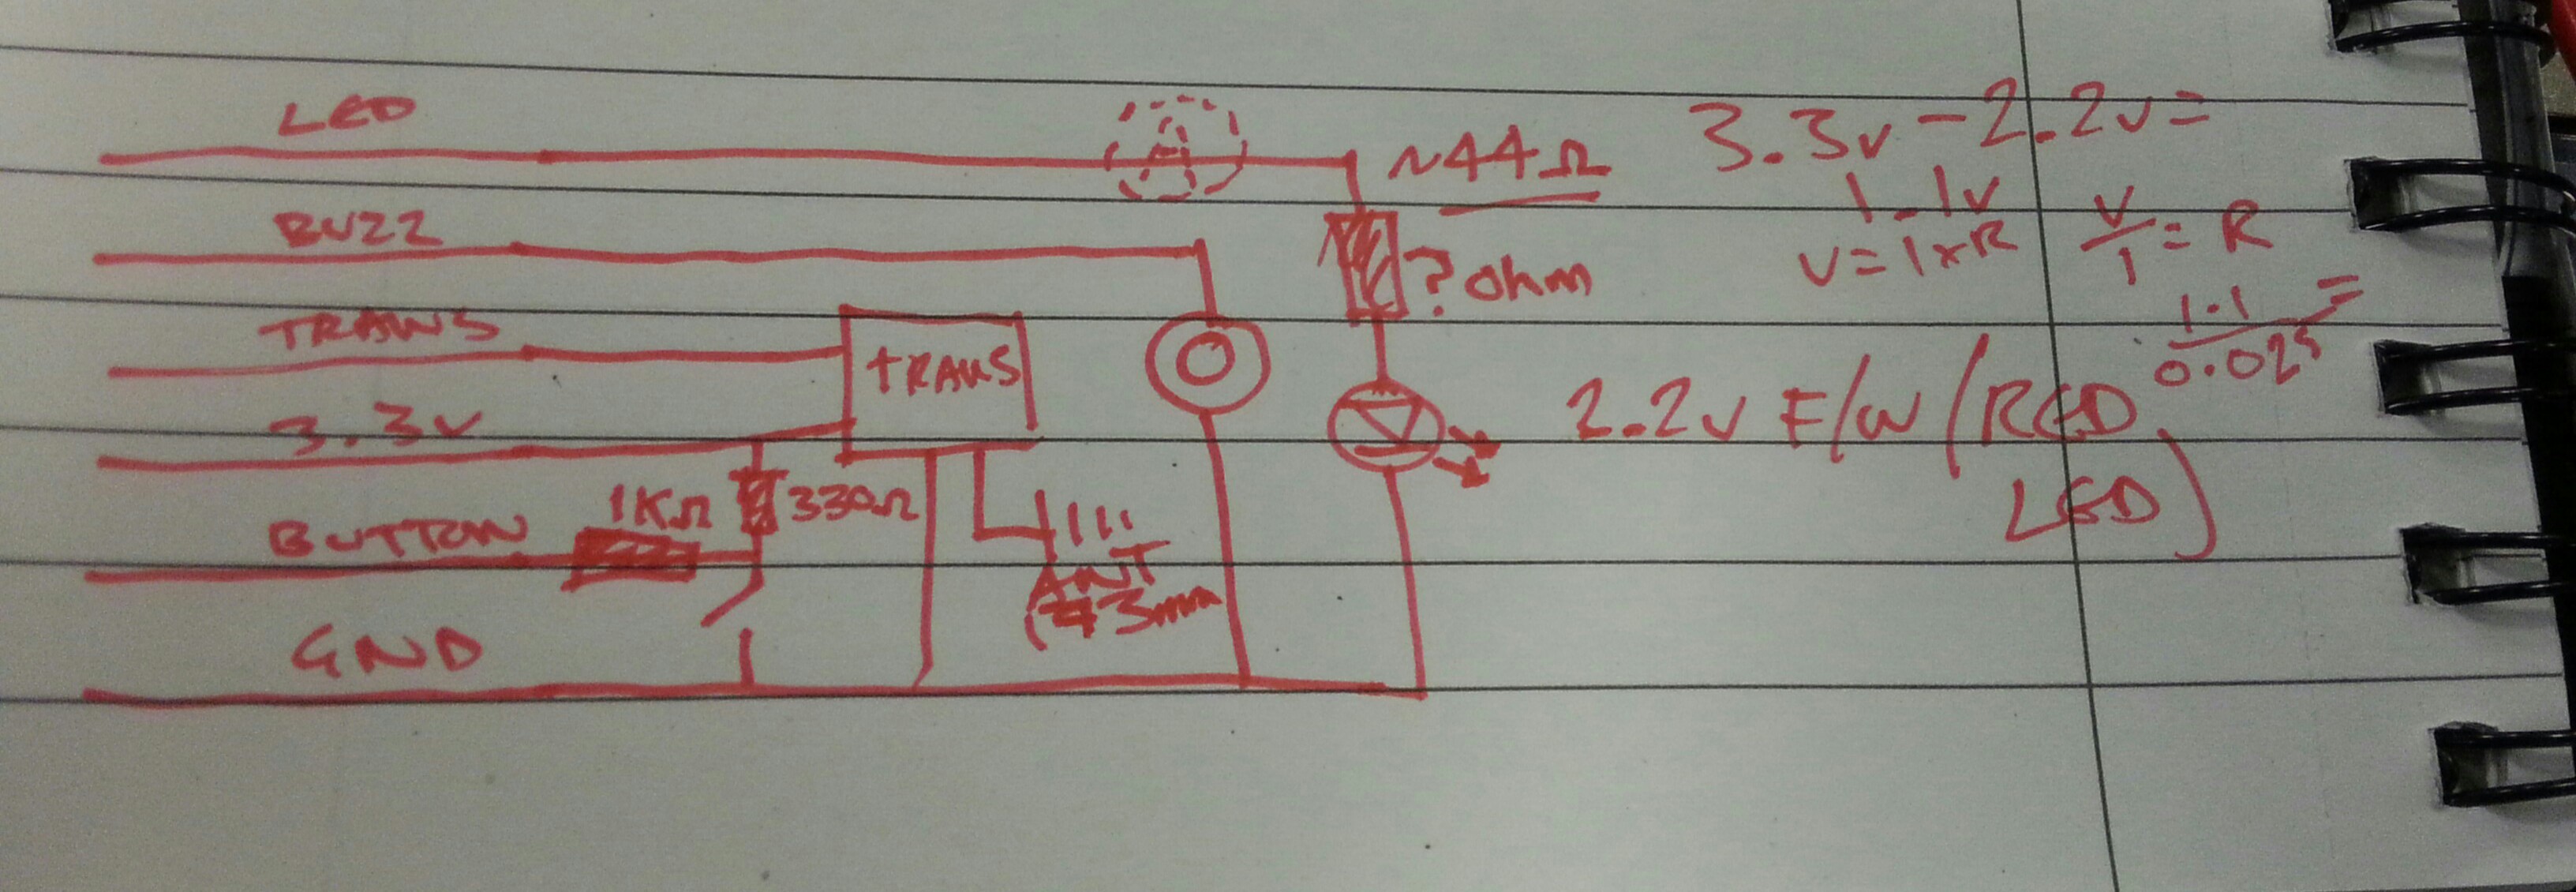 LED
BUZZ
TRANS
3.3v
BUTTON
GND
1KΩ
330Ω
tRANS
ANT
3mm
~44Ω
? ohm
3.3v - 2.2v =
1.1v
V = I x R
V/I = R
1.1/0.025 =
2.2v F/W (RED
LED)
A